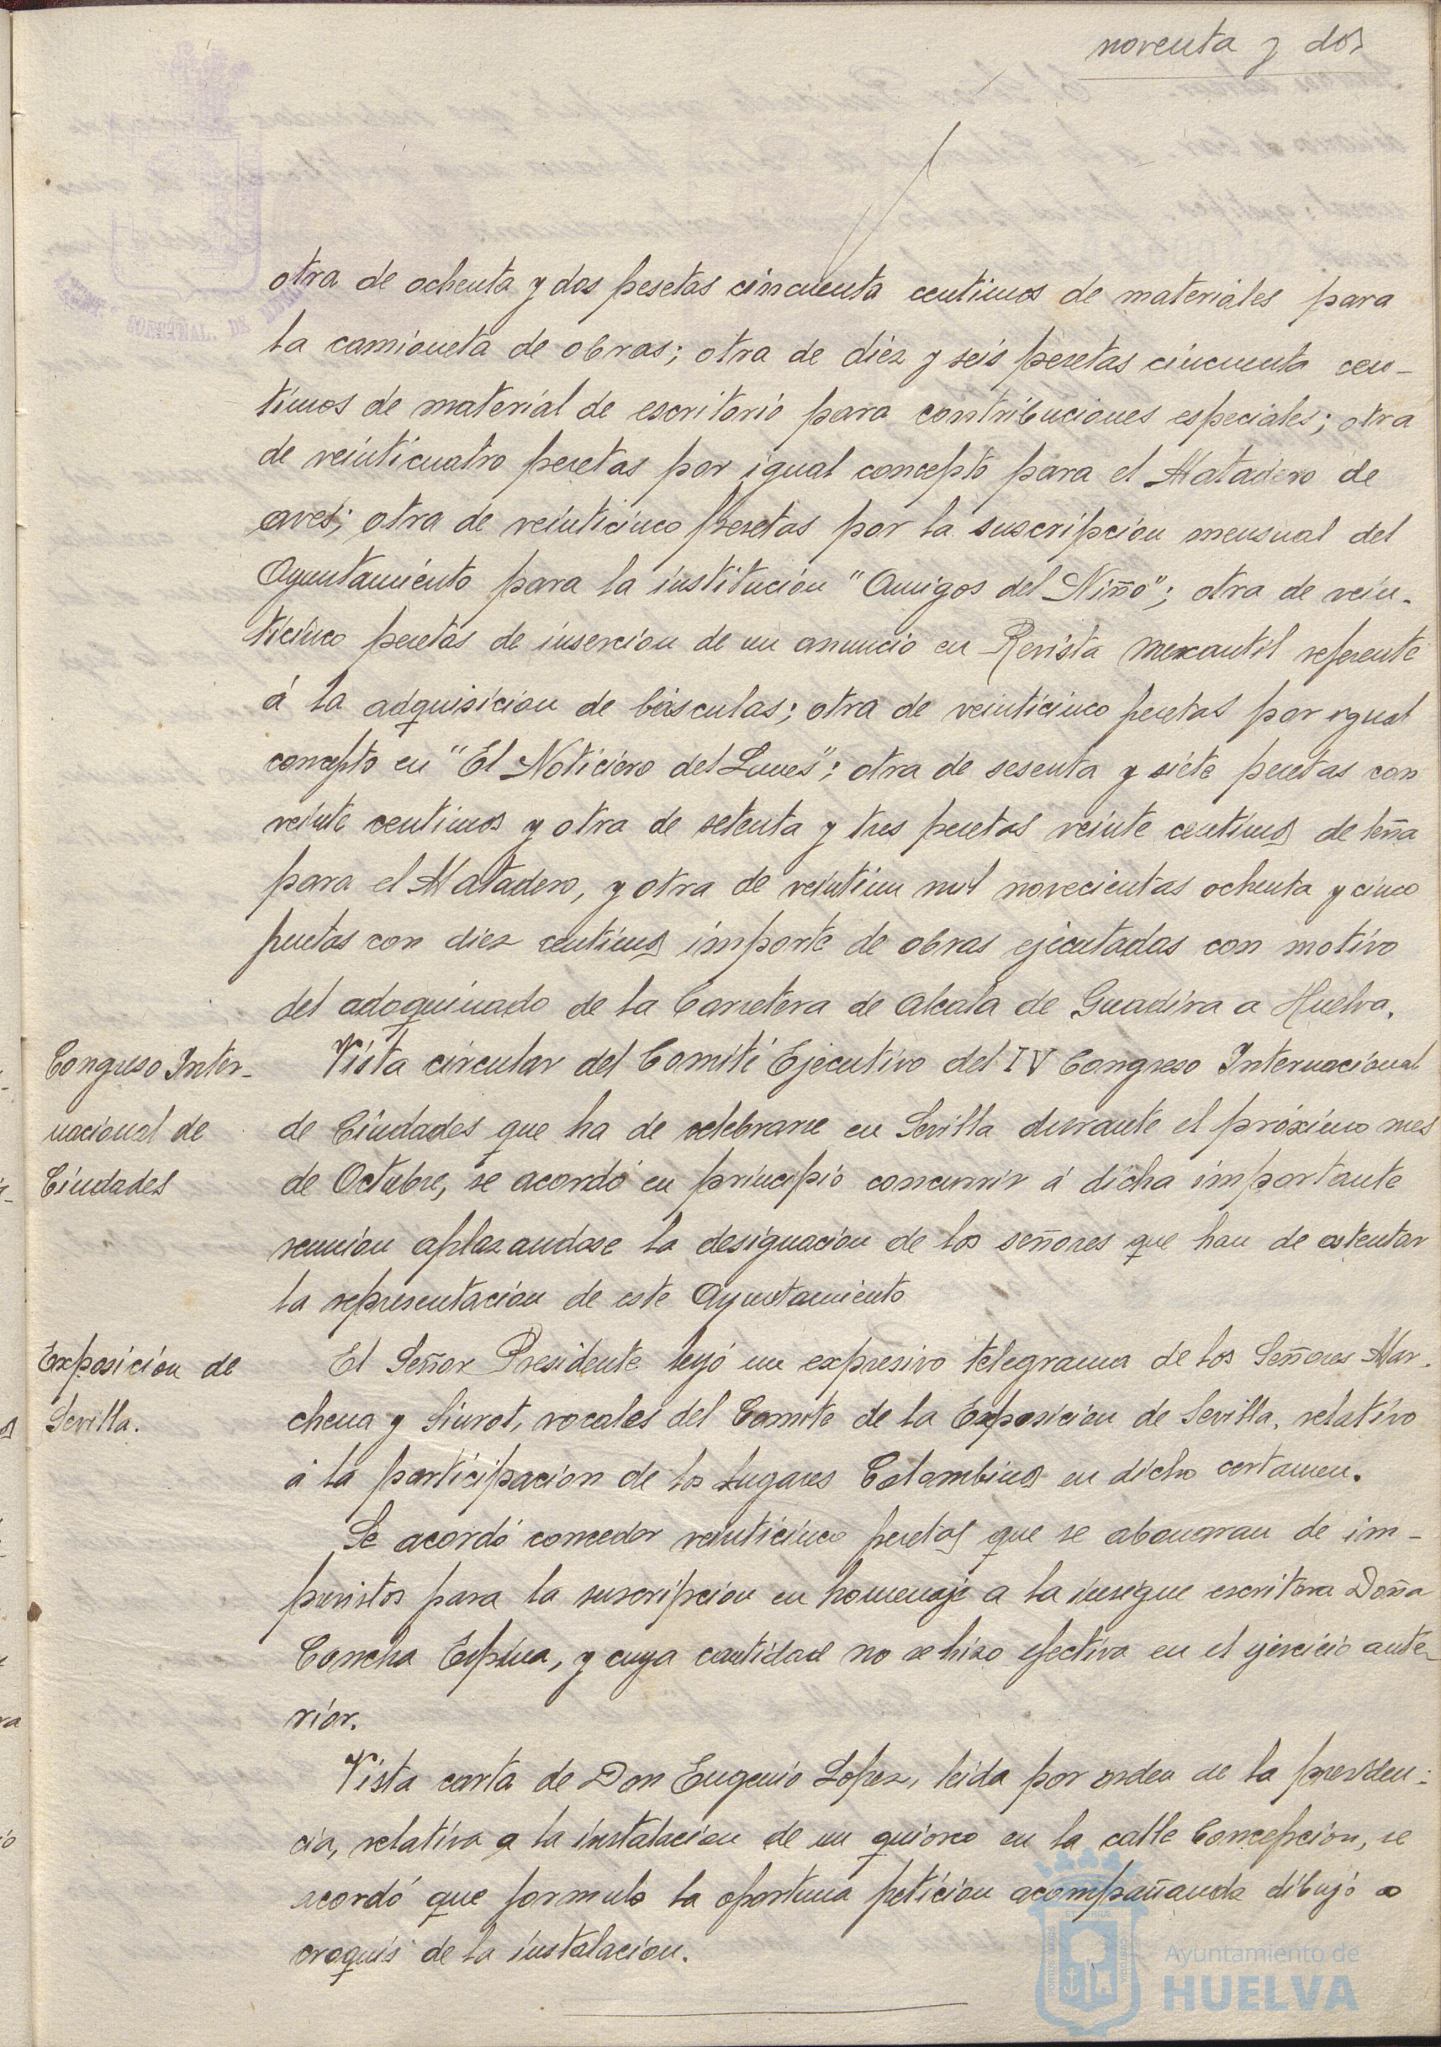 noventa y dos
otra de ochenta y dos pesetas cincuenta centimos de materiales para
la camioneta de obras; otra de diez y seis pesetas cincuenta cen-
timos de material de escritorio para contribuciones especiales; otra
de veinticuatro pesetas por igual concepto para el Matadero de
aves; otra de veinticinco pesetas por la suscripcion mensual del
Ayuntamiento para la institucion "Amigos del Niño"; otra de vein-
ticinco pesetas de insercion de un anuncio en Revista Mercantil referente
á la adquisicion de básculas; otra de veinticinco pesetas por igual
concepto en "El Noticiero del Lunes"; otra de sesenta y siete pesetas con
veinte centimos y otra de setenta y tres pesetas veinte centimos de leña
para el Matadero, y otra de veintiun mil novecientas ochenta y cinco
pesetas con diez centimos importe de obras ejecutadas con motivo
del adoquinado de la Carretera de Alcala de Guadira a Huelva.
Congreso Inter-
nacional de
Ciudades
Vista circular del Comité Ejecutivo del IV Congreso Internacional
de Ciudades que ha de celebrarse en Sevilla durante el próximo mes
de Octubre, se acordó en principio concurrir á dicha importante
reunion aplazandose la designacion de los señores que han de ostentar
la representacion de este Ayuntamiento
Exposicion de
Sevilla.
El Señor Presidente leyó un expresivo telegrama de los Señores Mar-
chena y Siurot, vocales del Comite de la Exposicion de Sevilla, relativo
á la participacion de los Lugares Colombinos en dicho certamen.
Se acordó conceder veinticinco pesetas que se abonaran de im-
previstos para la suscripcion en homenaje a la insigne escritora Doña
Concha Espina, y cuya cantidad no se hizo efectiva en el ejercicio ante-
rior.
Vista carta de Don Eugenio Lopez, leida por orden de la presiden-
cia, relativa a la instalacion de un quiosco en la calle Concepcion, se
acordó que formule la oportuna peticion acompañando dibujo o
croquis de la instalacion.
Ayuntamiento de
HUELVA